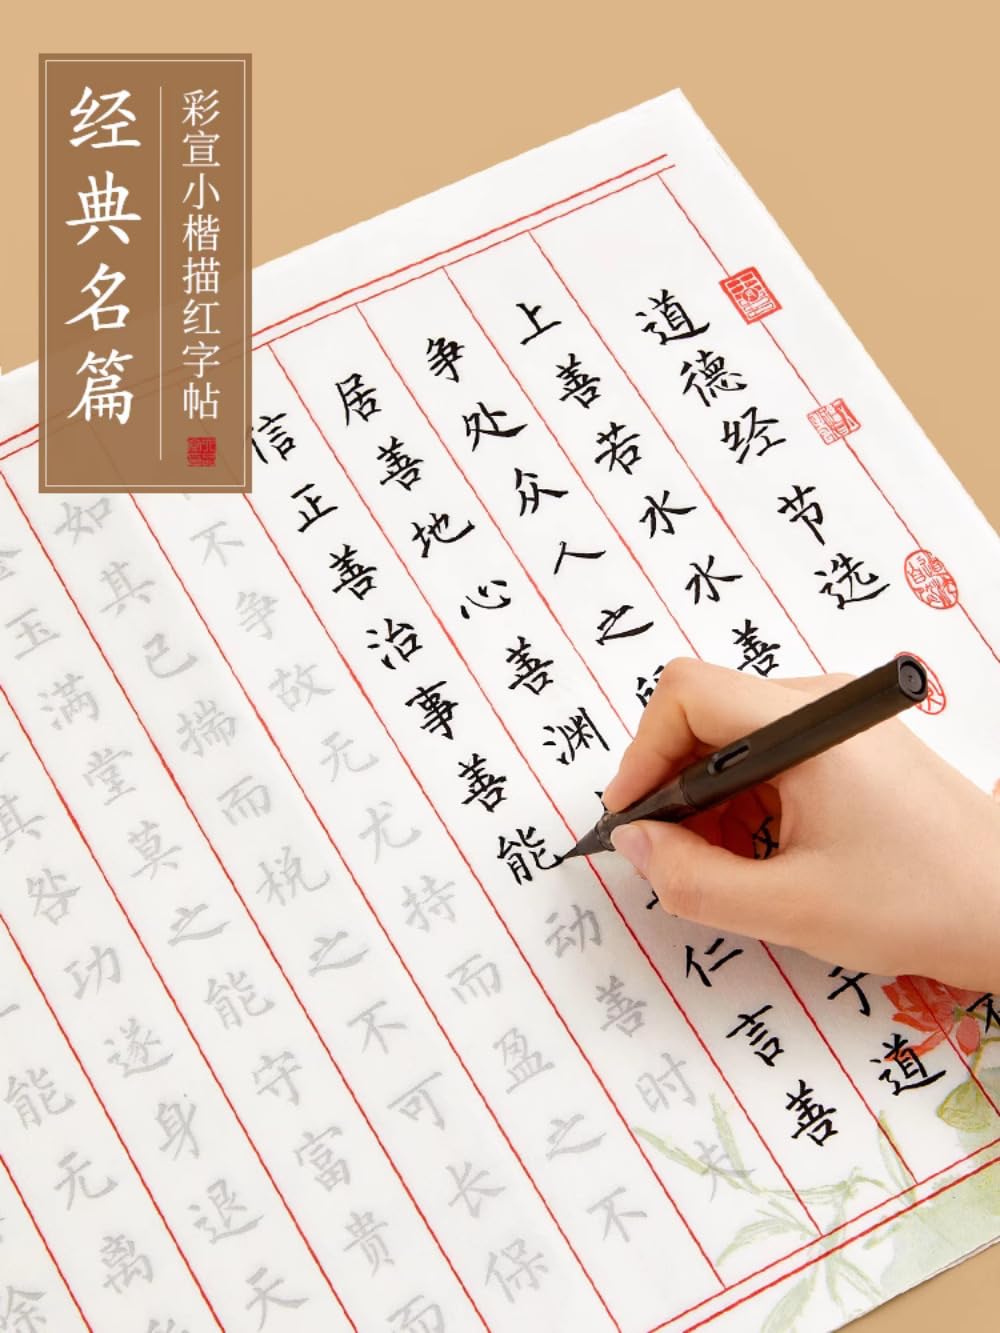 经典名篇
彩宣小楷描红字帖
道德经节选
上善若水水善
不
争处众人之所
于道
居善地心善渊
仁言善
信正善治事善能动善时夫
不争故无尤持而盈之不
如其已揣而税之不可长保
金玉满堂莫之能守富贵而
其咎功遂身退天
能无离
除